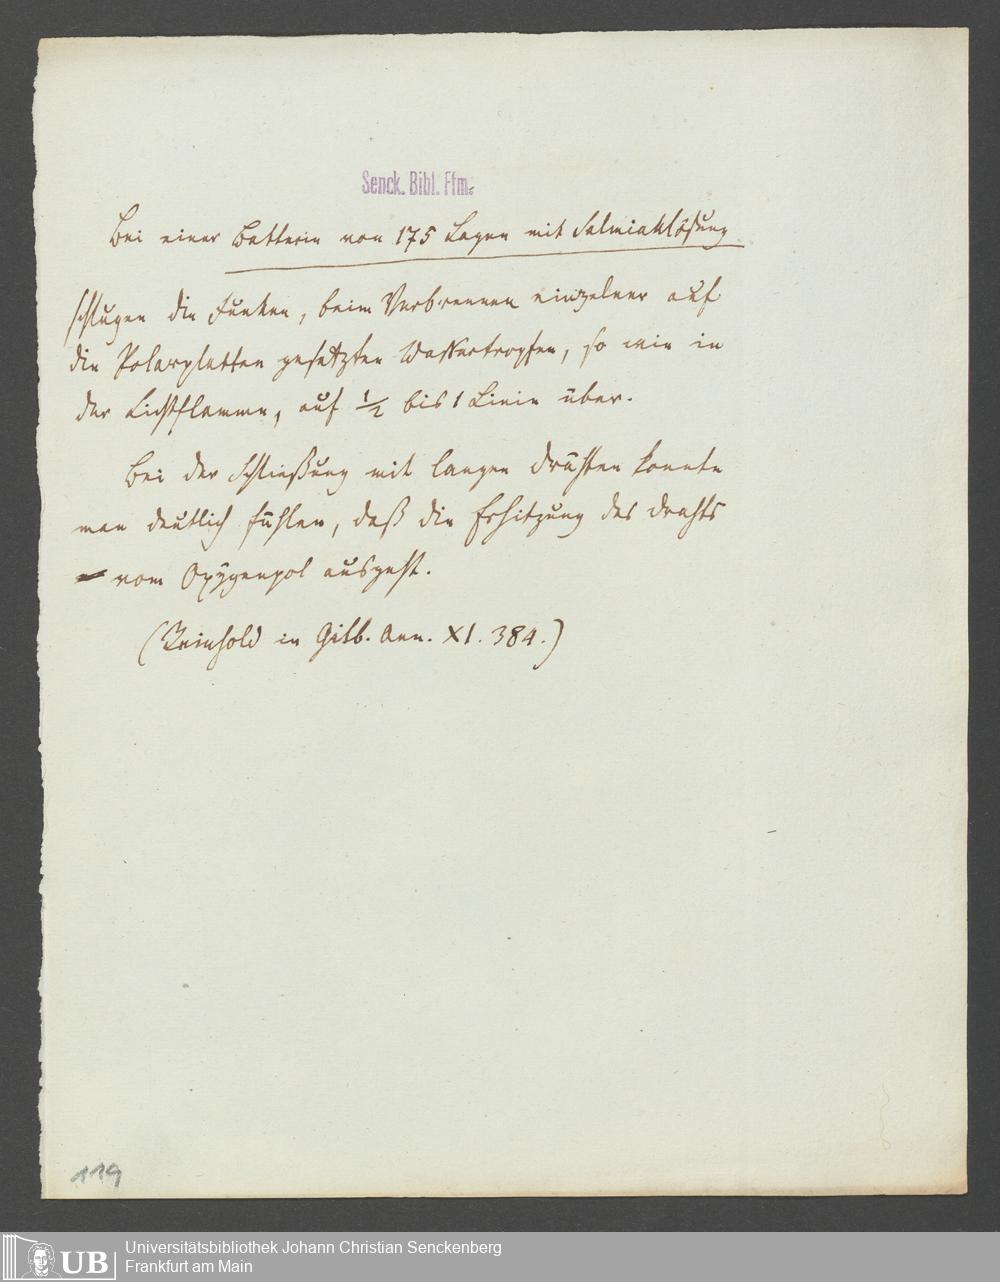 Senck. Bibl. Ffm.
Bei einer Batterie von 175 Lagen mit Salmiaklösung
schlugen die Funken, beim Verbrennen einzelner auf
die Polarplatten gesetzten Wassertropfen, so wie in
der Lichtflamme, auf 1/2 bis 1 Linie über.
Bei der Schließung mit langen Dräthen konnte
man deutlich fühlen, daß die Erhitzung des Drahts
vom Oxygenpol ausgeht.
(Reinhold in Gilb. Ann. XI. 384.)
119
UB
Universitätsbibliothek Johann Christian Senckenberg
Frankfurt am Main